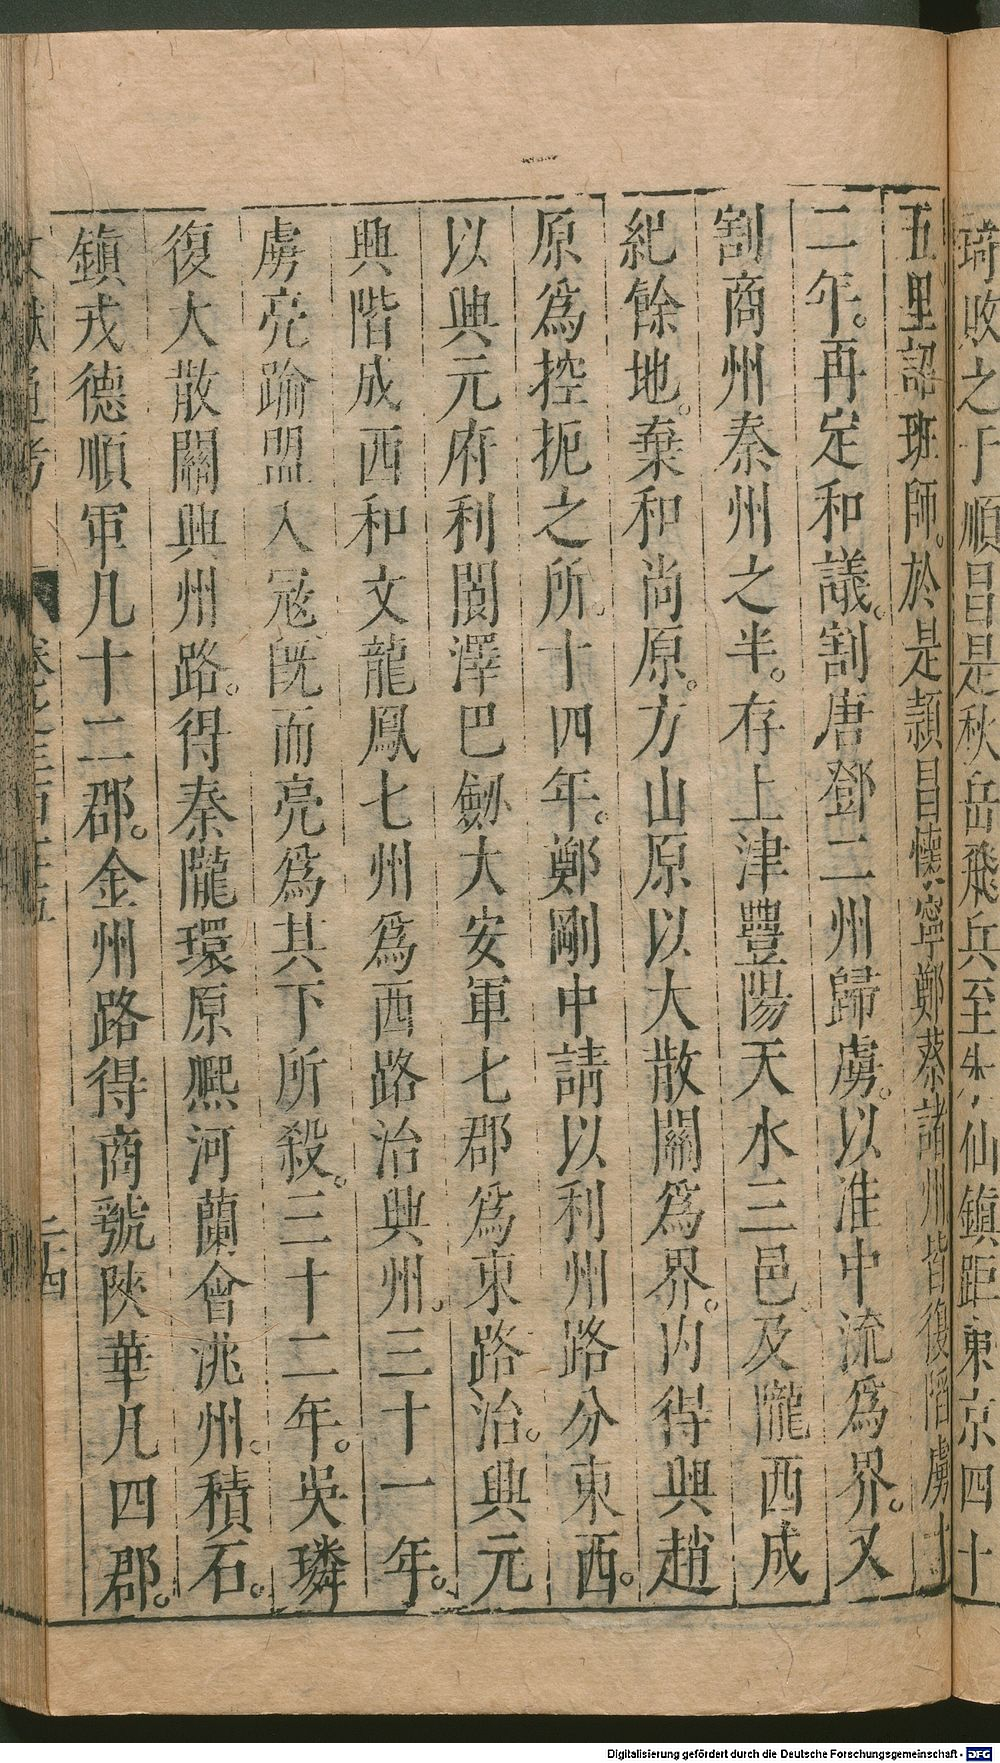 琦敗之于順昌是秋岳飛兵至朱仙鎮距東京四十
五里詔班師。於是頴昌懷寧鄭蔡諸州皆復陷虜十
二年。再定和議。割唐鄧二州歸虜。以淮中流爲界。又
割商州秦州之半。存上津豐陽天水三邑。及隴西成
紀餘地。棄和尚原。方山原以大散關爲界。内得興趙
原爲控扼之所。十四年。鄭剛中請以利州路分東西。
以興元府利閬洋巴劍大安軍七郡爲東路治。興元
興階成西和文龍鳳七州爲西路治興州。三十一年。
虜亮踰盟入冦。旣而亮爲其下所殺。三十二年。吳璘
復大散關興州路。得秦隴環原熈河蘭會洮州。積石。
鎮戎德順軍凡十二郡。金州路得商虢陝華凡四郡。
文獻通考 卷之三百十五 二十四
Digitalisierung gefördert durch die Deutsche Forschungsgemeinschaft - DFG